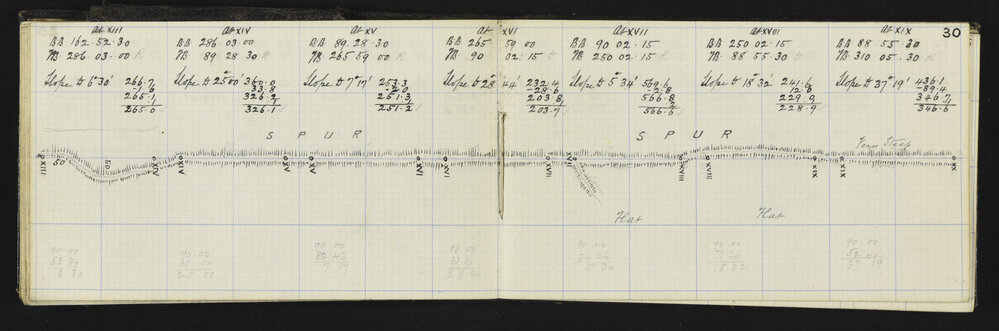 30
At XIII
B.B. 162.52.30
F.B. 286.03.00 R
Slope ↓ 6°30' 266.7
-1.6
265.1
.1
265.0
At XIV
B.B. 286.03.00
F.B. 89 28 30
Slope ↓ 25°00' 360.0
33.8
326.2
.1
326.1
At XV
B.B. 89.28.30
F.B. 265 59 00 R
Slope ↓ 7°17' 253.3
-2.0
251.3
.1
251.2
At XVI
B.B. 265 59 00
F.B. 90 02.15
Slope ↓ 28°44 232.4
-28.6
203.8
.1
203.7
At XVII
B.B. 90 02.15
F.B. 250 02.15 R
Slope ↓ 5°34'
-2.8
566.8
566.6
At XVIII
B.B. 250 02.15
F.B. 88 55.30
Slope ↓ 18°32' 241.6
12.6
229.0
.1
228.9
At XIX
B.B. 88.55.30
F.B. 310 05.30 R
Slope ↓ 37°19' 436.1
-89.4
346.7
.1
346.6
SPUR
SPUR
Very Steep
XIII
50
50
XIV
XIV
XV
XV
XVI
XVI
XVII
XVII
XVIII
XVIII
XIX
XIX
XX
Flat
Flat
90.00
83 30
6 30
90.00
65 00
25 00
90.00
82 43
7 17
90.00
61.16
28 44
90.00
84 26
5 34
90.00
71 28
18 32
90.00
52 41
37 19